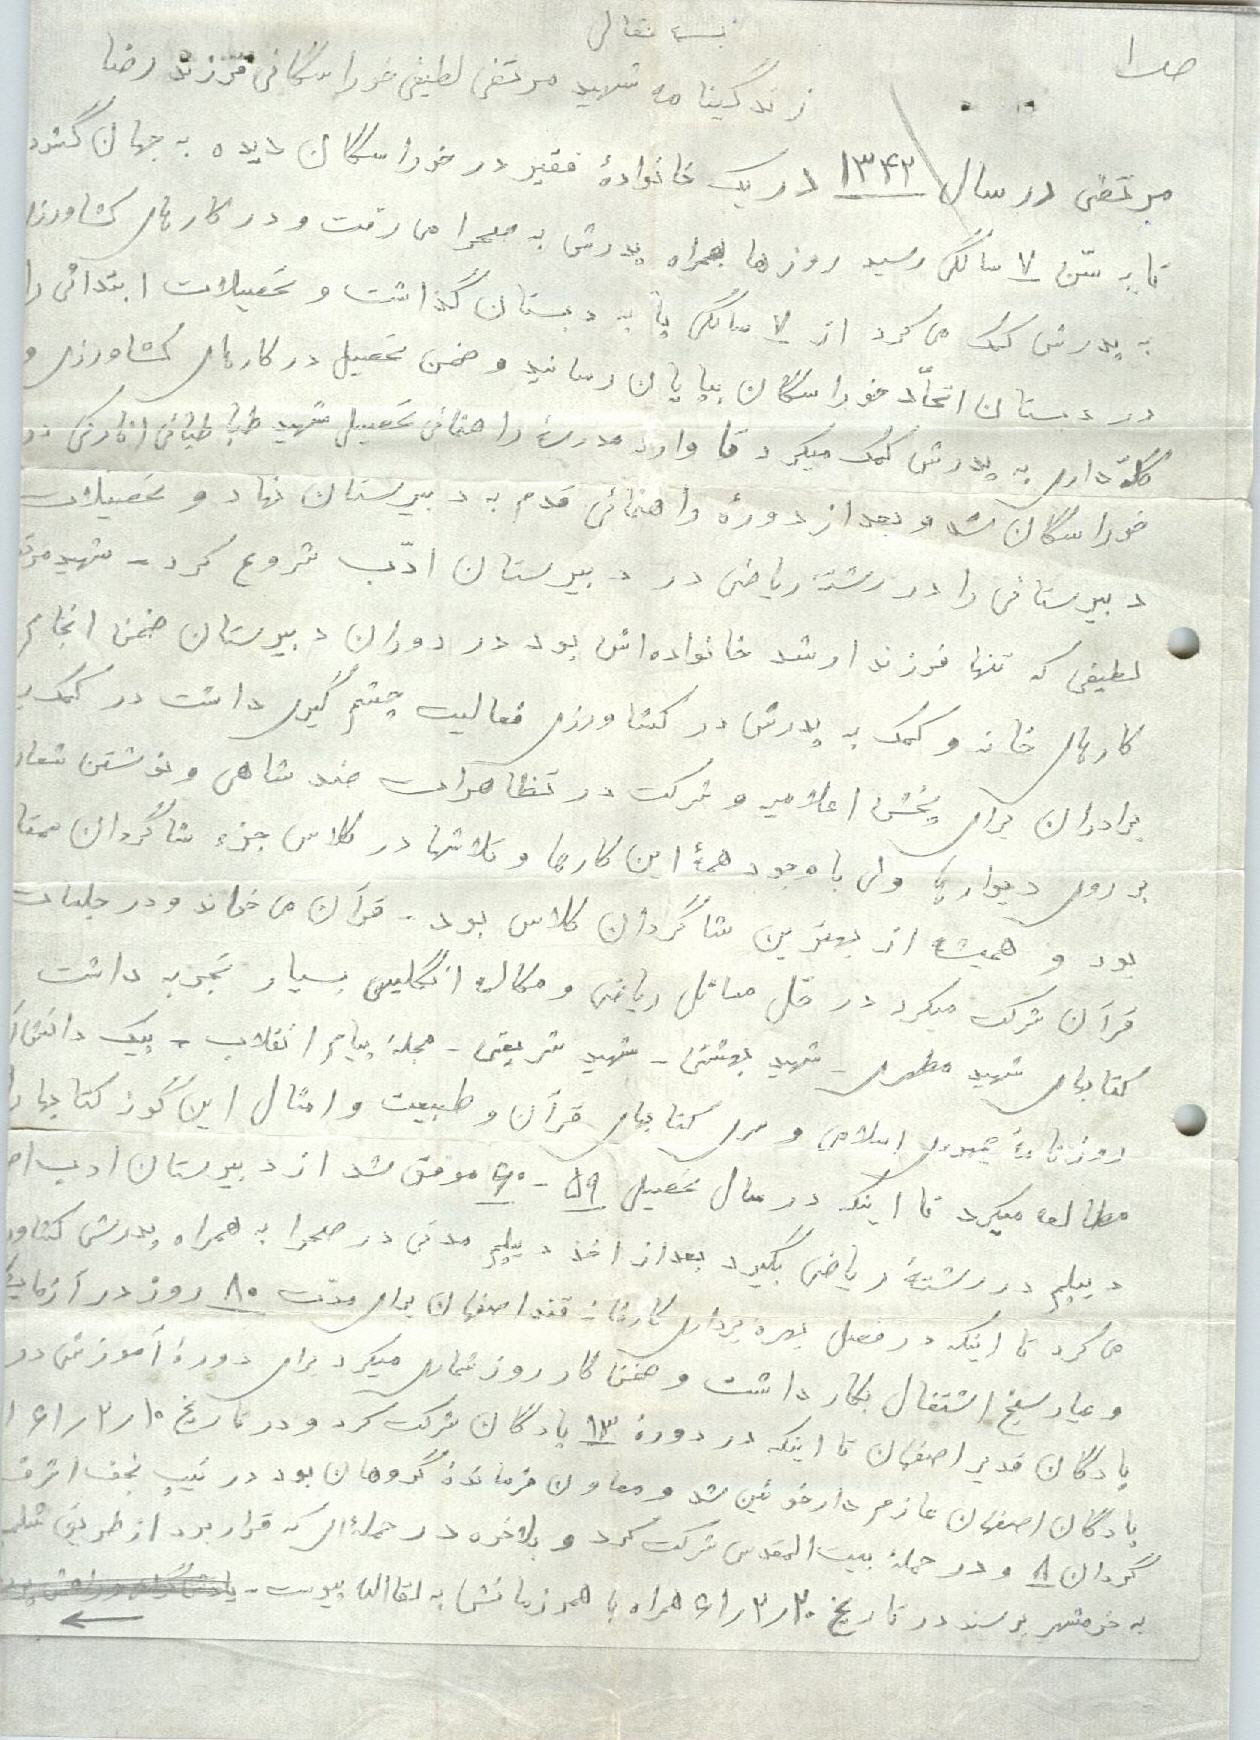 ص ۱
بسمه تعالی
زندگینامه شهید مرتضی لطیفی خوراسگانی فرزند رضا
مرتضی در سال ۱۳۴۲ در یک خانوادهٔ فقیر در خوراسگان دیده به جهان گشود
تا به سنّ ۷ سالگی رسید روزها همراه پدرش به صحرا می رفت و در کارهای کشاورزی
به پدرش کمک می کرد از ۷ سالگی پا به دبستان گذاشت و تحصیلات ابتدائی را
در دبستان اتحاّد خوراسگان بپایان رسانید و ضمن تحصیل در کارهای کشاورزی و
گلّه داری به پدرش کمک میکرد تا وارد مدرسهٔ راهنمائی تحصیلی شهید طباطبائی انارکی در
خوراسگان شد و بعد از دورهٔ راهنمائی قدم به دبیرستان نهاد و تحصیلات
دبیرستانی را در رشتهٔ ریاضی در دبیرستان ادّب شروع کرد - شهید
لطیفی که تنها فرزند ارشد خانواده‌اش بود در دوران دبیرستان ضمن انجام
کارهای خانه و کمک به پدرش در کشاورزی فعالیت چشم گیری داشت در کمک
برادران برای پخش اعلامیه و شرکت در تظاهرات ضد شاهی و نوشتن شعار
بر روی دیوارها ولی با وجود همهٔ این کارها و تلاشها در کلاس جزء شاگردان
بود و همیشه از بهترین شاگردان کلاس بود - قرآن می خواند و در جلسات
قرآن شرکت میکرد در حل مسائل ریاضی و مکالمه انگلیسی بسیار تجربه داشت
کتابهای شهید مطهری - شهید بهشتی - شهید شریعتی - مجلهٔ پیام انقلاب - پیک
روزنامهٔ جمهوری اسلامی و سری کتابهای قرآن و طبیعت و امثال این گونه کتابها را
مطالعه میکرد تا اینکه در سال تحصیلی ۵۹ - ۶۰ موفق شد از دبیرستان ادب
دیپلم در رشتهٔ ریاضی بگیرد بعد از اخذ دیپلم مدتی در صحرا به همراه پدرش
می کرد تا اینکه در فصل بهره برداری کارخانه قند اصفهان برای مدّت ۸۰ روز در
و عیار سنج اشتغال بکار داشت و ضمن کار روز شماری میکرد برای دورهٔ آموزشی در
پادگان غدیر اصفهان تا اینکه در دورهٔ ۱۳ پادگان شرکت کرد و در تاریخ ۱۰ر۲ر۶۱ از
پادگان اصفهان عازم دارخوئین شد و معاون فرماندهٔ گروهان بود در تیپ نجف اشرف
گردان ۸ و در حملهٔ بیت المقدس شرکت کرد و بلاخره در حمله‌ای که قرار بود از طریق شلمچه
به خرمشهر برسند در تاریخ ۲۰ر۲ر۶۱ همراه با همرزمانش به لقاالله پیوست -